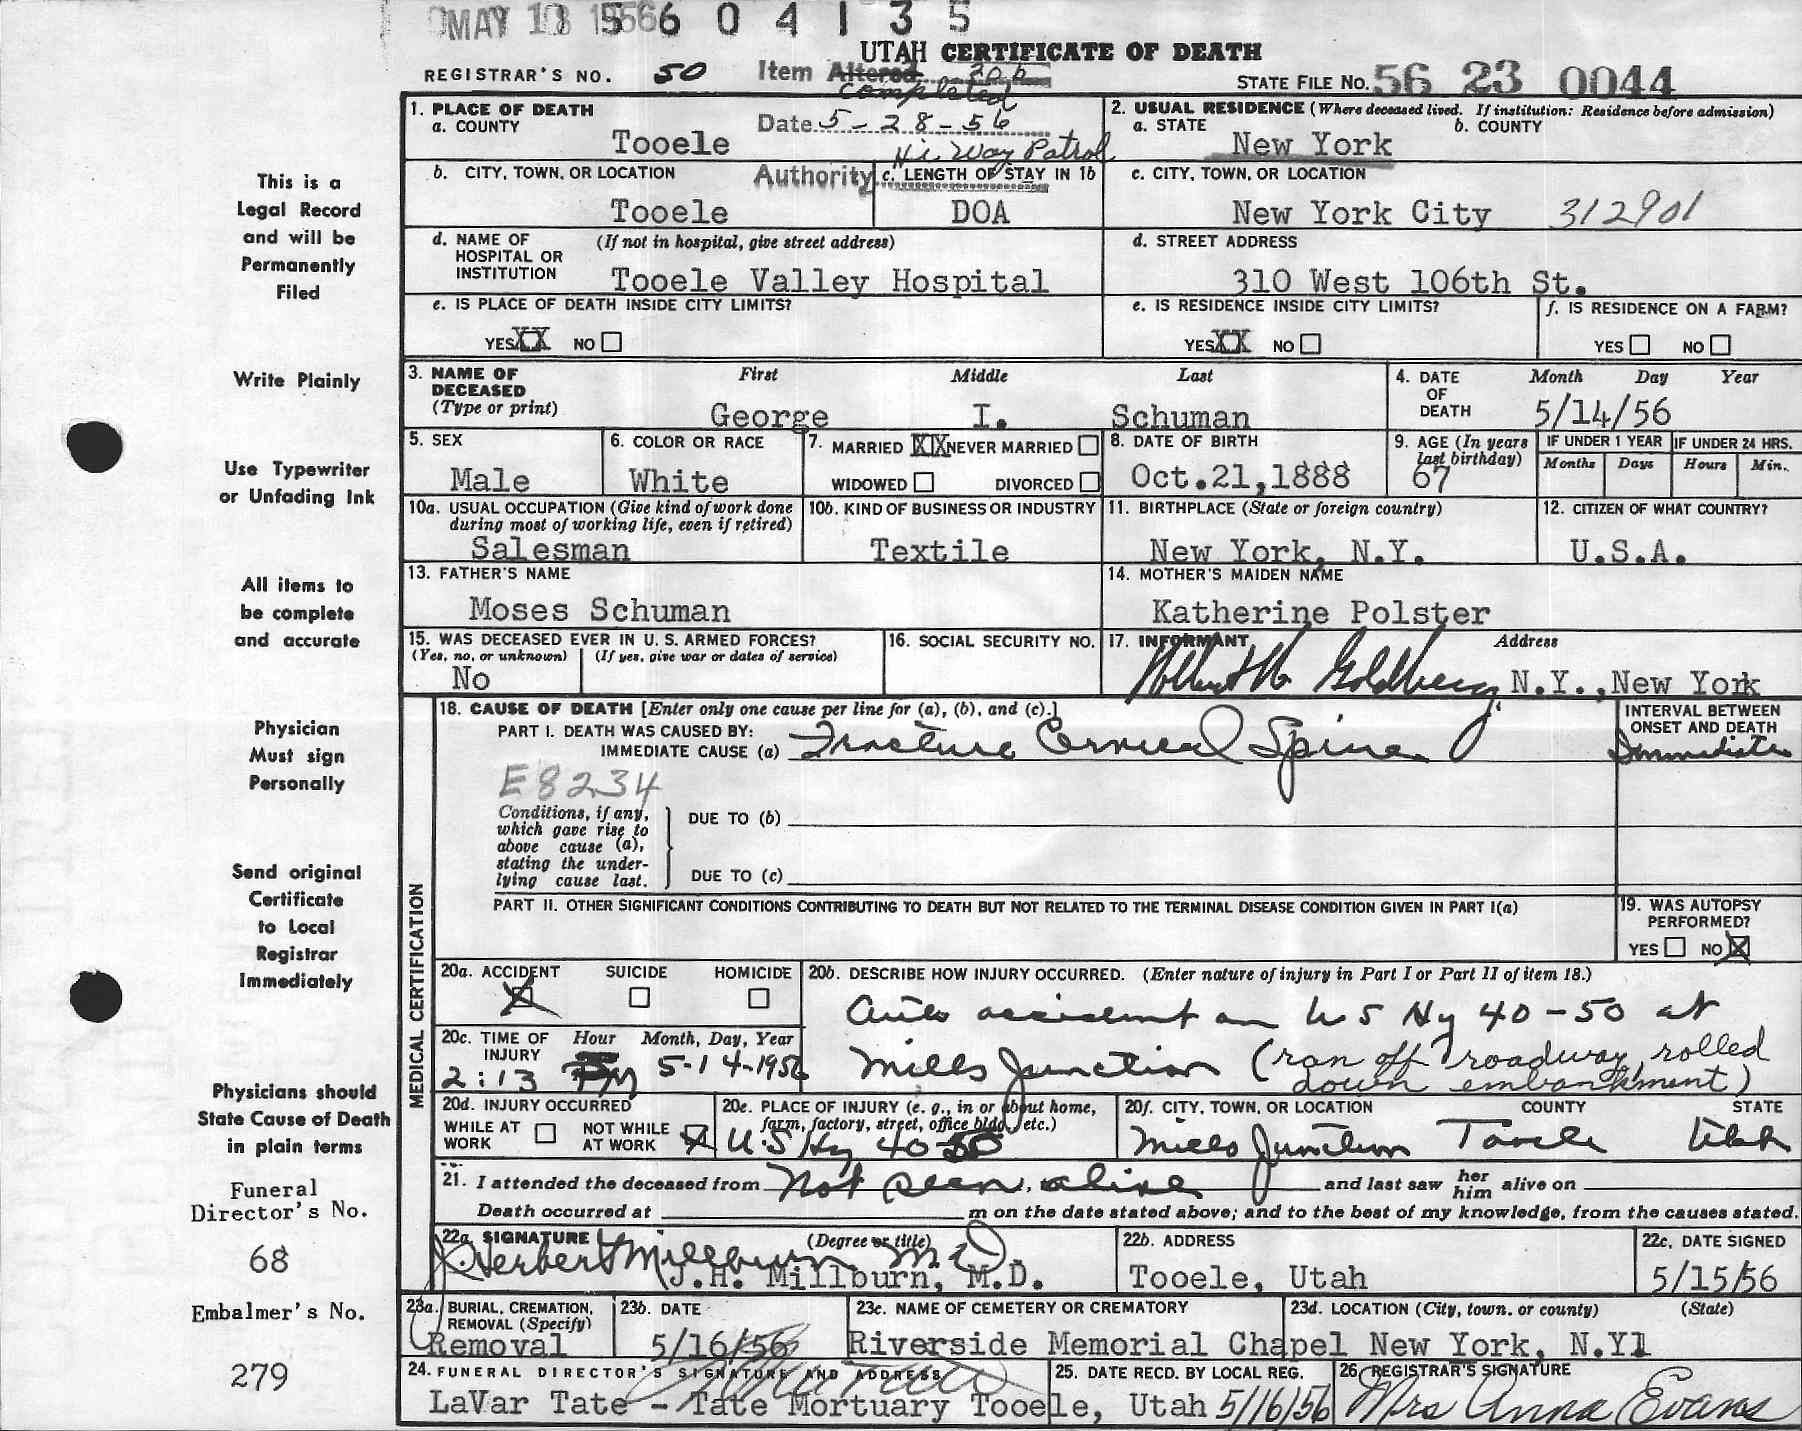 MAY 18 1956 6 0 4 1 3 5
UTAH CERTIFICATE OF DEATH
REGISTRAR'S NO. 50 Item Altered 20b
completed
STATE FILE No. 56 23 0044
Date 5-28-56
Hi Way Patrol
Authority
1. PLACE OF DEATH
a. COUNTY
Tooele
2. USUAL RESIDENCE (Where deceased lived. If institution: Residence before admission)
a. STATE b. COUNTY
New York
b. CITY, TOWN, OR LOCATION
Tooele
c. LENGTH OF STAY IN 1b
DOA
c. CITY, TOWN, OR LOCATION
New York City 312901
d. NAME OF HOSPITAL OR INSTITUTION (If not in hospital, give street address)
Tooele Valley Hospital
d. STREET ADDRESS
310 West 106th St.
e. IS PLACE OF DEATH INSIDE CITY LIMITS?
YES XX NO
e. IS RESIDENCE INSIDE CITY LIMITS?
YES XX NO
f. IS RESIDENCE ON A FARM?
YES NO
3. NAME OF DECEASED (Type or print)
First Middle Last
George I. Schuman
4. DATE OF DEATH Month Day Year
5/14/56
5. SEX
Male
6. COLOR OR RACE
White
7. MARRIED XX NEVER MARRIED
WIDOWED DIVORCED
8. DATE OF BIRTH
Oct.21,1888
9. AGE (In years last birthday)
67
IF UNDER 1 YEAR IF UNDER 24 HRS.
Months Days Hours Min.
10a. USUAL OCCUPATION (Give kind of work done during most of working life, even if retired)
Salesman
10b. KIND OF BUSINESS OR INDUSTRY
Textile
11. BIRTHPLACE (State or foreign country)
New York, N.Y.
12. CITIZEN OF WHAT COUNTRY?
U.S.A.
13. FATHER'S NAME
Moses Schuman
14. MOTHER'S MAIDEN NAME
Katherine Polster
15. WAS DECEASED EVER IN U. S. ARMED FORCES?
(Yes, no, or unknown) (If yes, give war or dates of service)
No
16. SOCIAL SECURITY NO.
17. INFORMANT Address
Goldberg N.Y., New York
18. CAUSE OF DEATH [Enter only one cause per line for (a), (b), and (c).]
PART I. DEATH WAS CAUSED BY:
IMMEDIATE CAUSE (a) Fracture Cervical Spine
INTERVAL BETWEEN ONSET AND DEATH
Immediate
E8234
Conditions, if any, which gave rise to above cause (a), stating the underlying cause last.
DUE TO (b)
DUE TO (c)
PART II. OTHER SIGNIFICANT CONDITIONS CONTRIBUTING TO DEATH BUT NOT RELATED TO THE TERMINAL DISEASE CONDITION GIVEN IN PART I(a)
19. WAS AUTOPSY PERFORMED?
YES NO X
20a. ACCIDENT SUICIDE HOMICIDE
X
20b. DESCRIBE HOW INJURY OCCURRED. (Enter nature of injury in Part I or Part II of item 18.)
Auto accident on US Hy 40-50 at
Mills Junction (ran off roadway, rolled
down embankment)
20c. TIME OF INJURY Hour Month, Day, Year
2:13 PM 5-14-1956
20d. INJURY OCCURRED
WHILE AT WORK NOT WHILE AT WORK X
20e. PLACE OF INJURY (e. g., in or about home, farm, factory, street, office bldg., etc.)
U.S Hy 40-50
20f. CITY, TOWN, OR LOCATION COUNTY STATE
Mills Junction Tooele Utah
21. I attended the deceased from Not seen alive and last saw her him alive on
Death occurred at m on the date stated above; and to the best of my knowledge, from the causes stated.
22a. SIGNATURE (Degree or title)
J. Herbert Millburn M D
J.H. Millburn, M.D.
22b. ADDRESS
Tooele, Utah
22c. DATE SIGNED
5/15/56
23a. BURIAL, CREMATION, REMOVAL (Specify)
Removal
23b. DATE
5/16/56
23c. NAME OF CEMETERY OR CREMATORY
Riverside Memorial Chapel
23d. LOCATION (City, town, or county) (State)
New York, N.Y1
24. FUNERAL DIRECTOR'S SIGNATURE AND ADDRESS
LaVar Tate - Tate Mortuary Tooele, Utah
25. DATE RECD. BY LOCAL REG.
5/16/56
26. REGISTRAR'S SIGNATURE
Mrs Anna Evans
MEDICAL CERTIFICATION
This is a
Legal Record
and will be
Permanently
Filed
Write Plainly
Use Typewriter
or Unfading Ink
All items to
be complete
and accurate
Physician
Must sign
Personally
Send original
Certificate
to Local
Registrar
Immediately
Physicians should
State Cause of Death
in plain terms
Funeral
Director's No.
68
Embalmer's No.
279